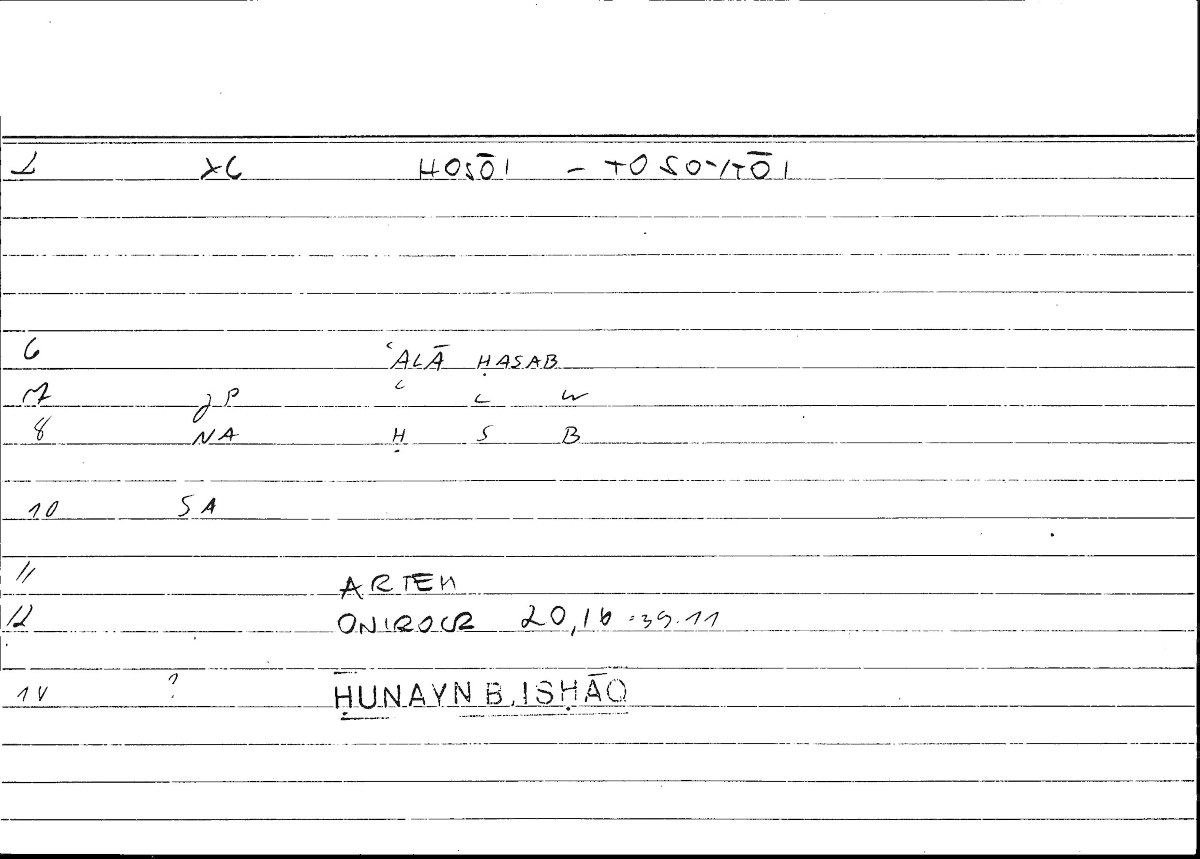 1 XC HOSŌI – TOSOYTŌI
6 ʿALĀ ḤASAB
7 JP ʿ L W
8 NA Ḥ S B
10 SA
11 ARTEM
12 ONIROCR 20,16 = 39.11
14 ? ḤUNAYN B. ISḤĀQ